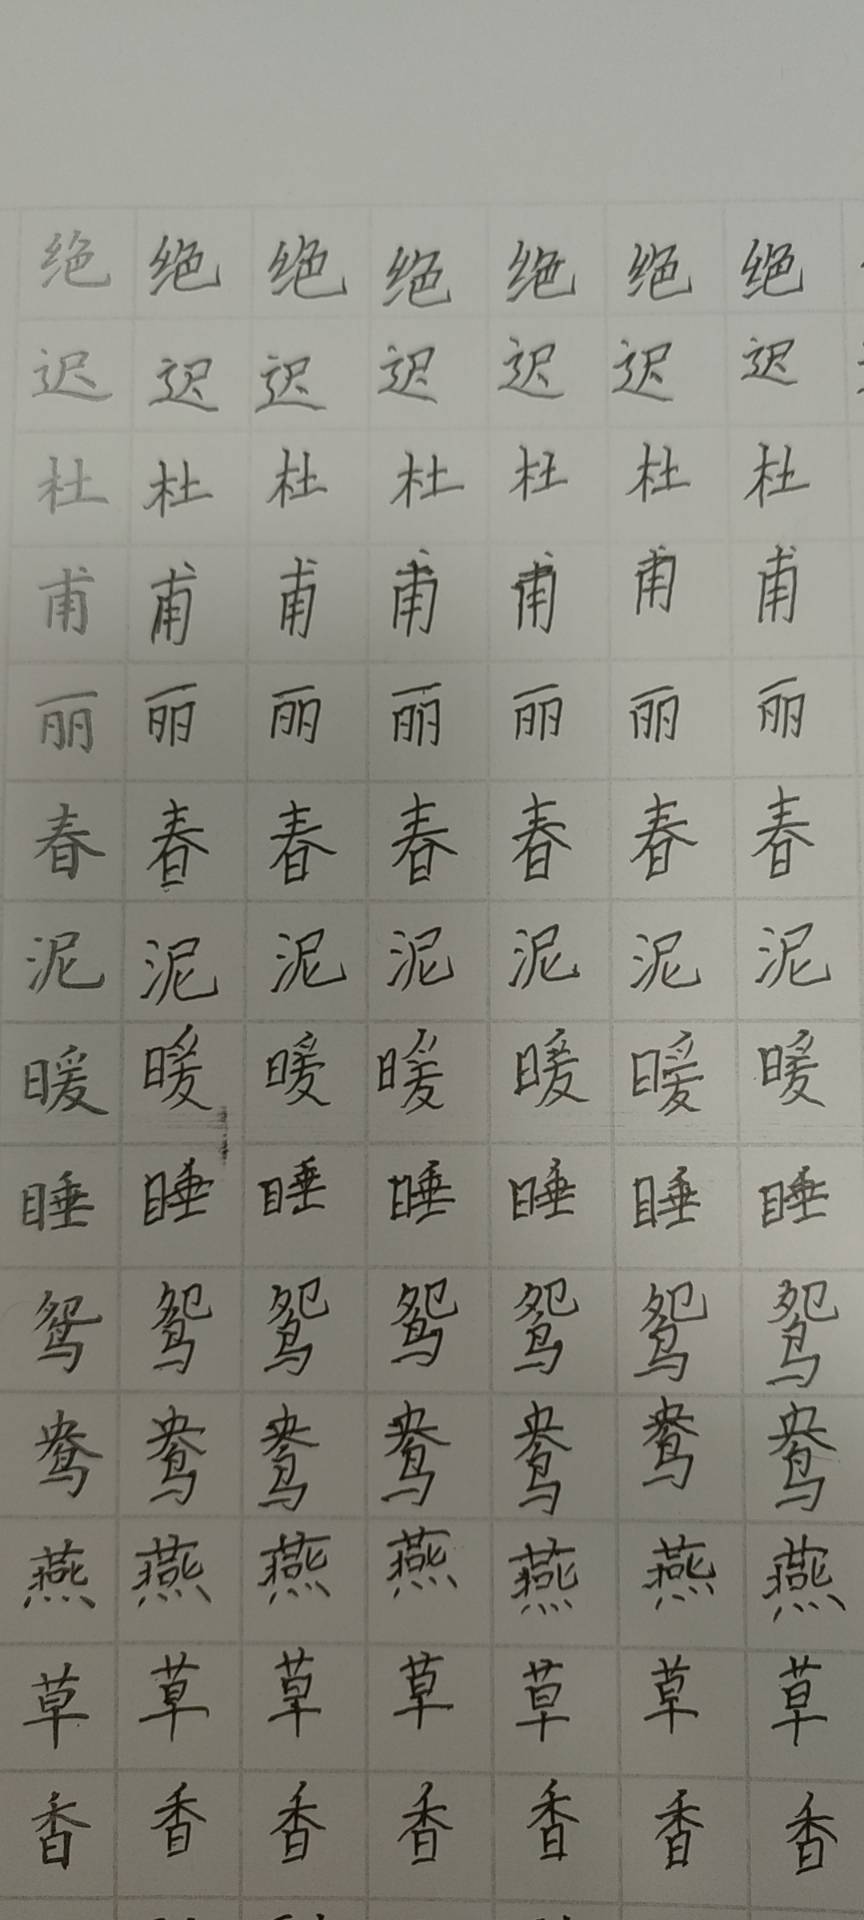 绝 绝 绝 绝 绝 绝 绝
迟 迟 迟 迟 迟 迟 迟
杜 杜 杜 杜 杜 杜 杜
甫 甫 甫 甫 甫 甫 甫
丽 丽 丽 丽 丽 丽 丽
春 春 春 春 春 春 春
泥 泥 泥 泥 泥 泥 泥
暖 暖 暖 暖 暖 暖 暖
睡 睡 睡 睡 睡 睡 睡
鸳 鸳 鸳 鸳 鸳 鸳 鸳
鸯 鸯 鸯 鸯 鸯 鸯 鸯
燕 燕 燕 燕 燕 燕 燕
草 草 草 草 草 草 草
香 香 香 香 香 香 香